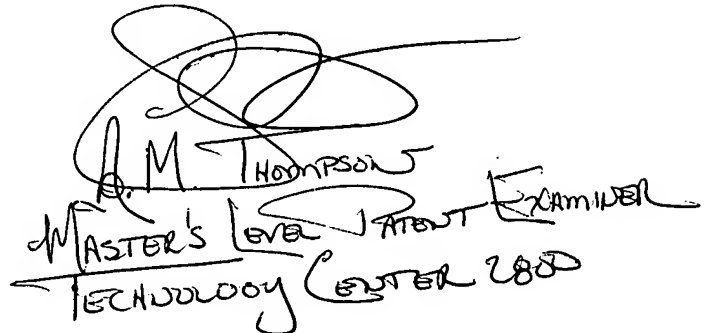 A. M. THOMPSON
MASTER'S LEVEL PATENT EXAMINER
TECHNOLOGY CENTER 2800